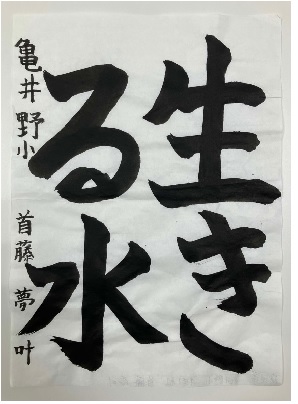 生き
る水
亀井野小 首藤夢叶